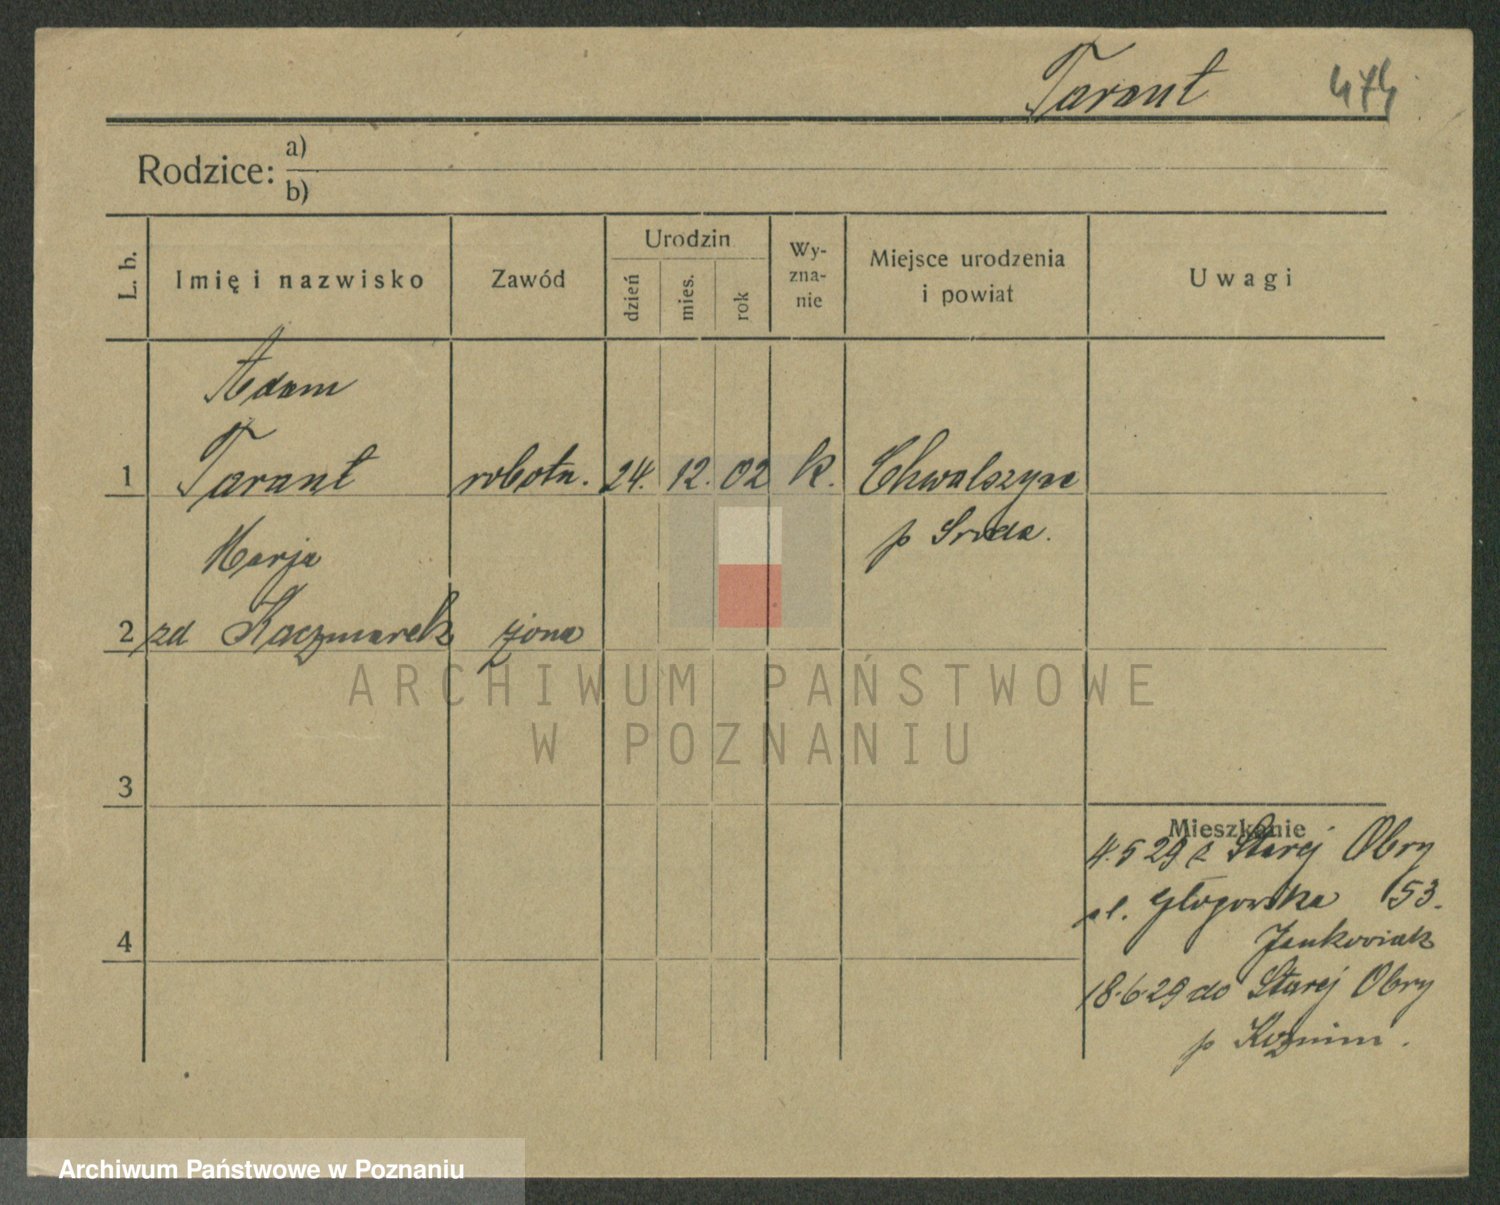 Tarant 474
Rodzice: a)
b)
L. b. Imię i nazwisko Zawód Urodzin dzień mies. rok Wy-zna-nie Miejsce urodzenia i powiat Uwagi
Adam
1 Tarant robotn. 24. 12. 02 k. Chwalszyce
p Sroda.
Marja
2 zd Kaczmarek żona
ARCHIWUM PAŃSTWOWE
W POZNANIU
3
Mieszkanie
4.5 29 z Starej Obry
ul. Głogowska 53.
Jankowiak
4
18.6.29 do Starej Obry
p Kozmin.
Archiwum Państwowe w Poznaniu